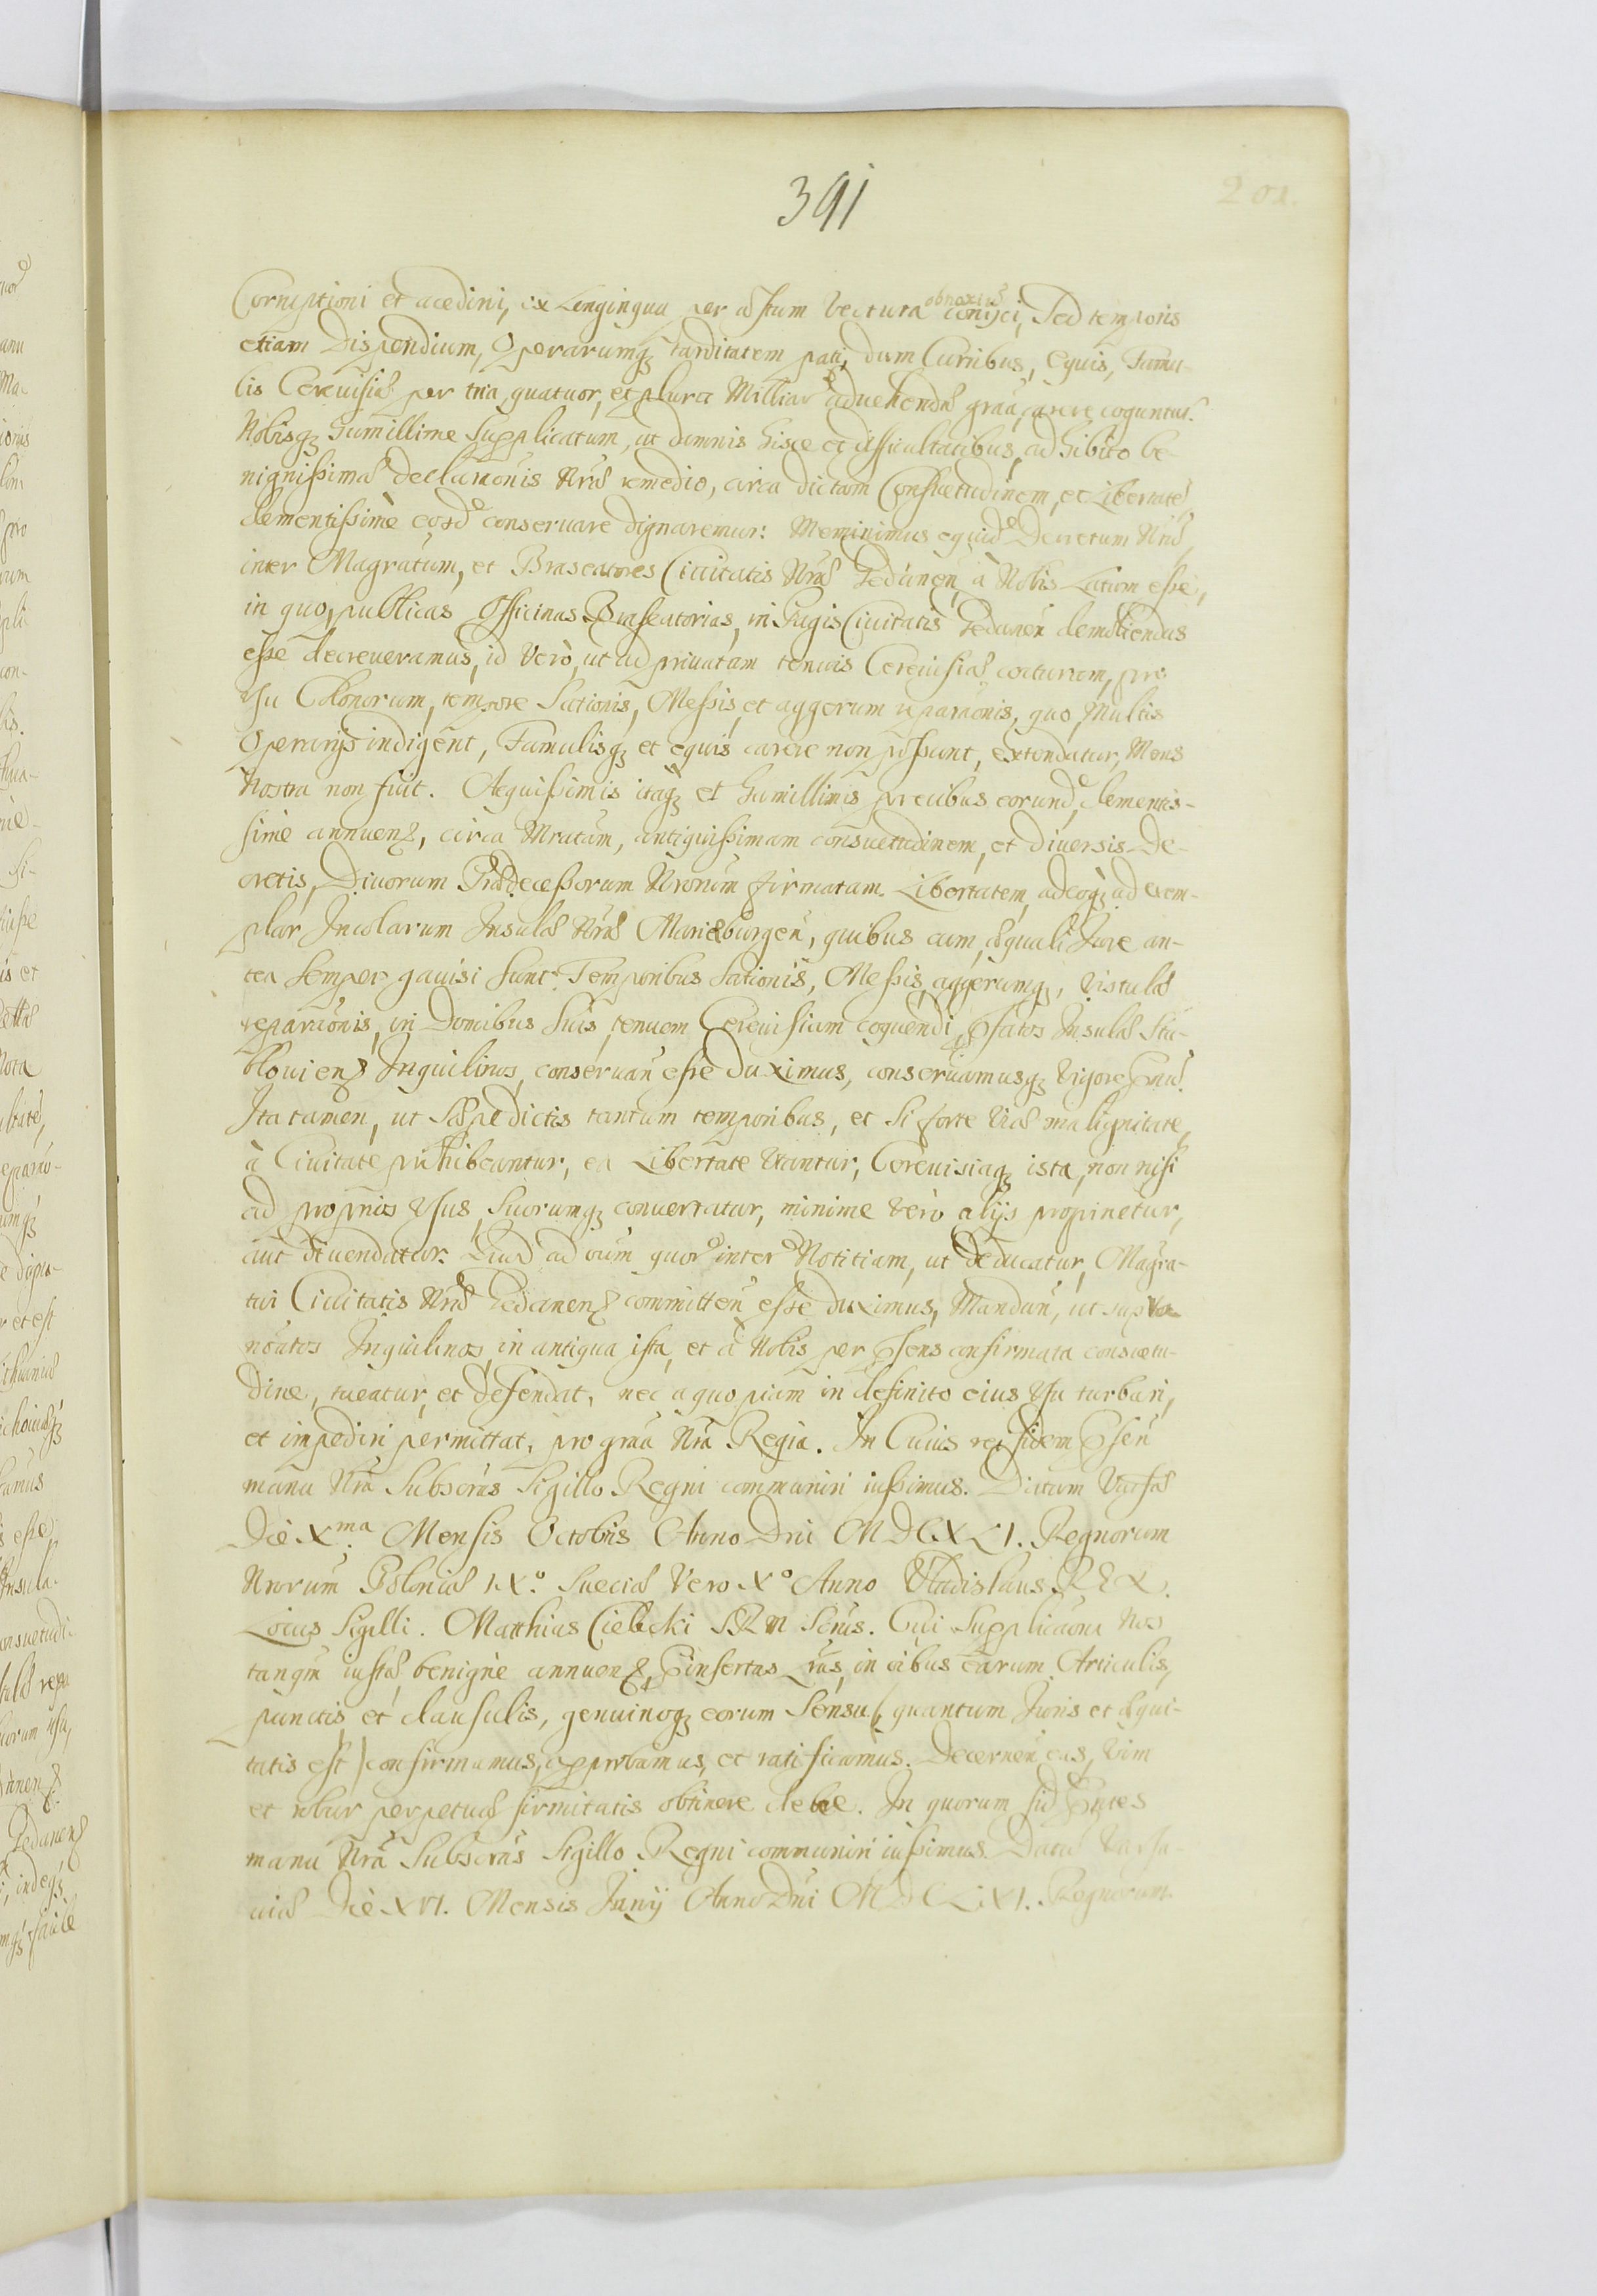 391
201.
Corruptioni et acedini, ex Longinqua per æstum Vectura obnoxias conijci, Sed temporis
etiam Dispendium, Operarumq3 tarditatem pati, dum Curribus, Equis, Famu-
lis Cereuisiæ per tria, quatuor, et plura Milliaria aduehendæ grãa, carere coguntur.
Nobisq3 humillime Supplicatum, ut damnis hisce et difficultatibus, adhibito be-
nignissimæ declaraõnis Nræ remedio, circa dictam Consuetudinem, et Libertatẽ,
clementissimè eosd̃ conseruare dignaremur: Meminimus equid̃ Decretum Nrũ,
inter Magratum, et Braseatores Ciuitatis Nræ Gedanen̄, à Nobis Latum esse,
in quo, publicas Officinas Braseatorias, in Pagis Ciuitatis Gedanen̄ demoliendas
esse decreueramus, id Verò, ut ad priuatam tenuis Cereuisiæ cocturam, pro
Vsu Colonorum, tempore Sationis, Messis, et aggerum reparaõnis, quo, Multis
Operarijs indigent, Famulisq3 et equis carere non possunt, extendatur, Mens
Nostra non fuit. Aequissimis itaq3 et humillimis precibus eorund̃, clementis-
sime annuen̄, circa Mratam, antiquissimam consuetudinem, et diuersis De-
cretis, Diuorum Prædecessorum Nrorum firmatam Libertatem, adeoq3 ad exem-
plar Incolarum Insulæ Nræ Marieburgen̄, quibus cum, æquali Jure an-
tea Semper gauisi sunt. Temporibus Sationis, Messis, aggerumq3, Vistulæ
reparaõnis, in Domibus Suis, tenuem Cereuisiam coquendi, Pfatos Insulæ Stu-
blouien̄ Inquilinos, conseruan̄ esse duximus, conseruamusq3 Vigore Pntiũ.
Ita tamen, ut Sæpedictis tantum temporibus, et Si forte Viæ malignitate,
à Ciuitate prohibeantur, ea Libertate Vtantur, Cereuisiaq3 ista, non nisi
ad proprios Vsus, Suorumq3 conuertatur, minime Vero alijs propinetur,
aut diuendatur. Quod ad oium quor̃ interẽ Notitiam, ut deducatur, Magra-
tui Ciuitatis Nræ Gedanen̄ committen̄ esse duximus, Mandan̄, ut supra
noiatos Inquilinos, in antiqua ista, et à Nobis per Psens confirmata consuetu-
dine, tueatur, et defendat, nec a quopiam in definito eius Vsu turbari,
et impediri permittat, pro grãa Nrã Regia. In Cuius rei fidem Psen̄
manu Nrã Subscras Sigillo Regni communiri iussimus. Datum Varsæ
Die Xma Mensis Octobris Anno Dni MDCXLI. Regnorum
Nrorum Poloniæ IXo. Sueciæ Vero Xo Anno Vladislaus REX.
Locus Sigilli. Matthias Cielecki SRM Scrius. Cui Supplicaõni Nos
tanqm iustæ, benigne annuen̄, Pinsertas Lras, in oibus earum Articulis,
punctis, et clausulis, genuinoq3 eorum Sensu, (quantum Juris et æqui-
tatis est) confirmamus, approbamus, et ratificamus. Decernen̄ eas, Vim
et robur perpetuæ firmitatis obtinere debere. In quorum fid̃ Pntes
manu Nrã Subscras Sigillo Regni communiri iussimus. Datũ Varsa-
uiæ Die XVI. Mensis Junij Anno Dni MDCLXI. Regnorum